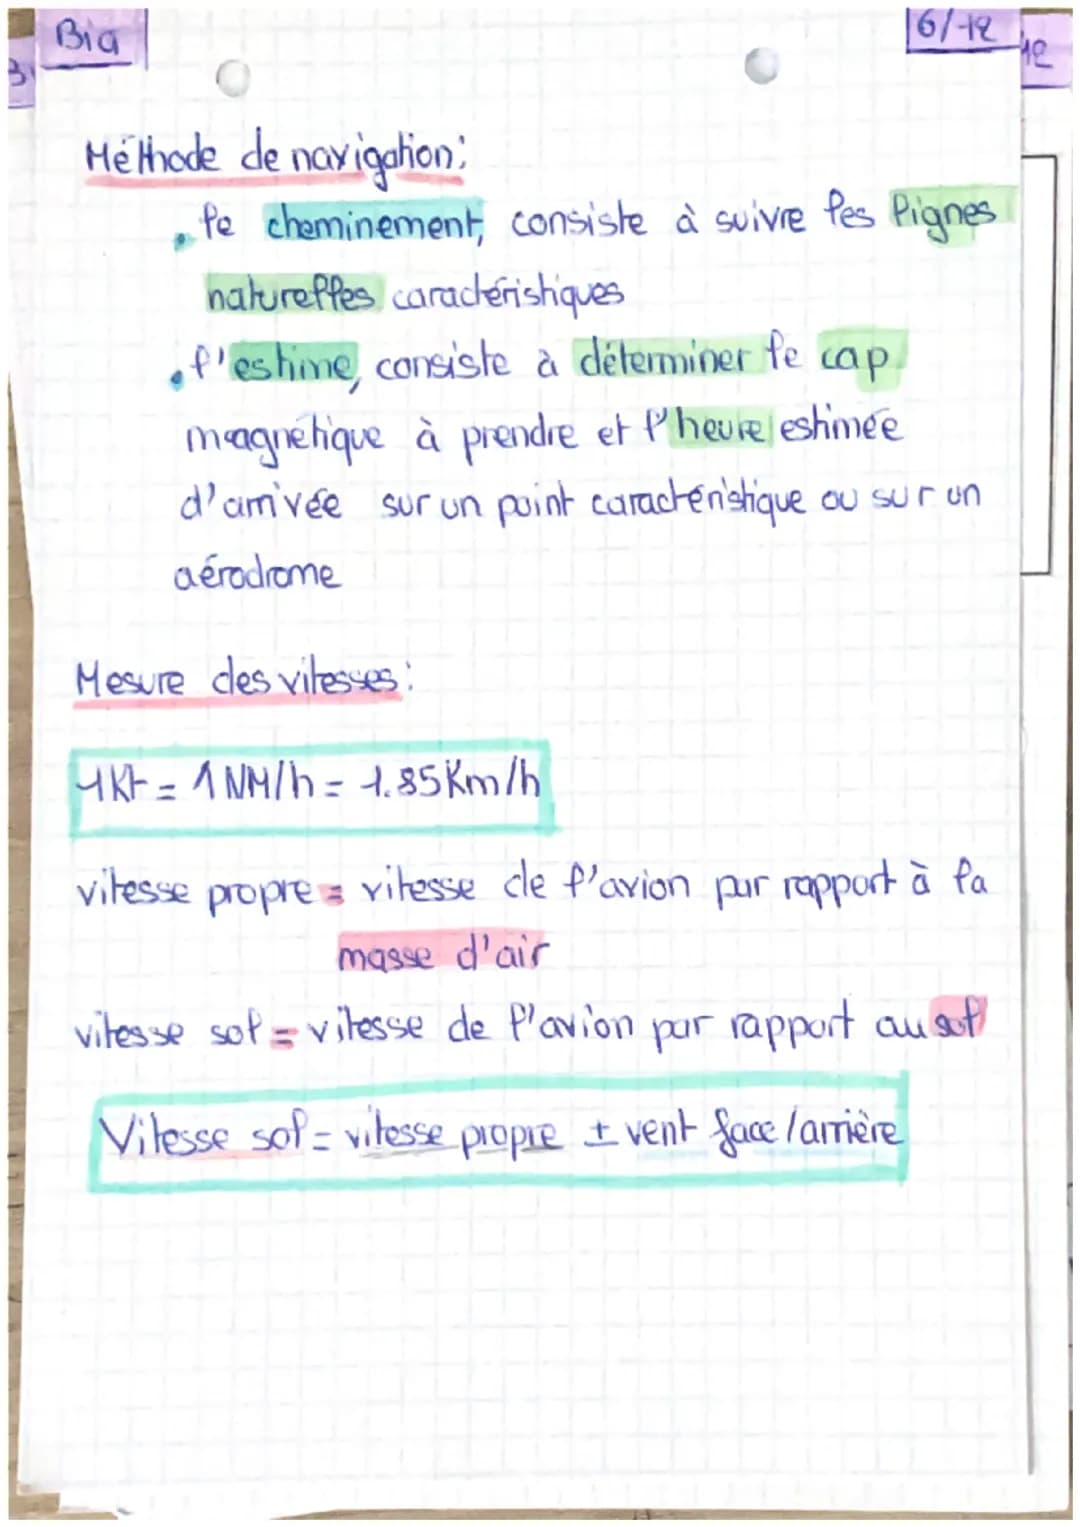 Bia
16/12
12
3
Méthode de navigation:
• le cheminement, consiste à suivre les lignes
naturelles caractéristiques
• l'estime, consiste à déterminer le cap
magnétique à prendre et l'heure estimée
d'arrivée sur un point caractéristique ou sur un
aérodrome
Mesure des vitesses:
1Kt = 1 NM/h = 1.85Km/h
vitesse propre = vitesse de l'avion par rapport à la
masse d'air
vitesse sol = vitesse de l'avion par rapport au sol
Vitesse sol = vitesse propre ± vent face/arrière